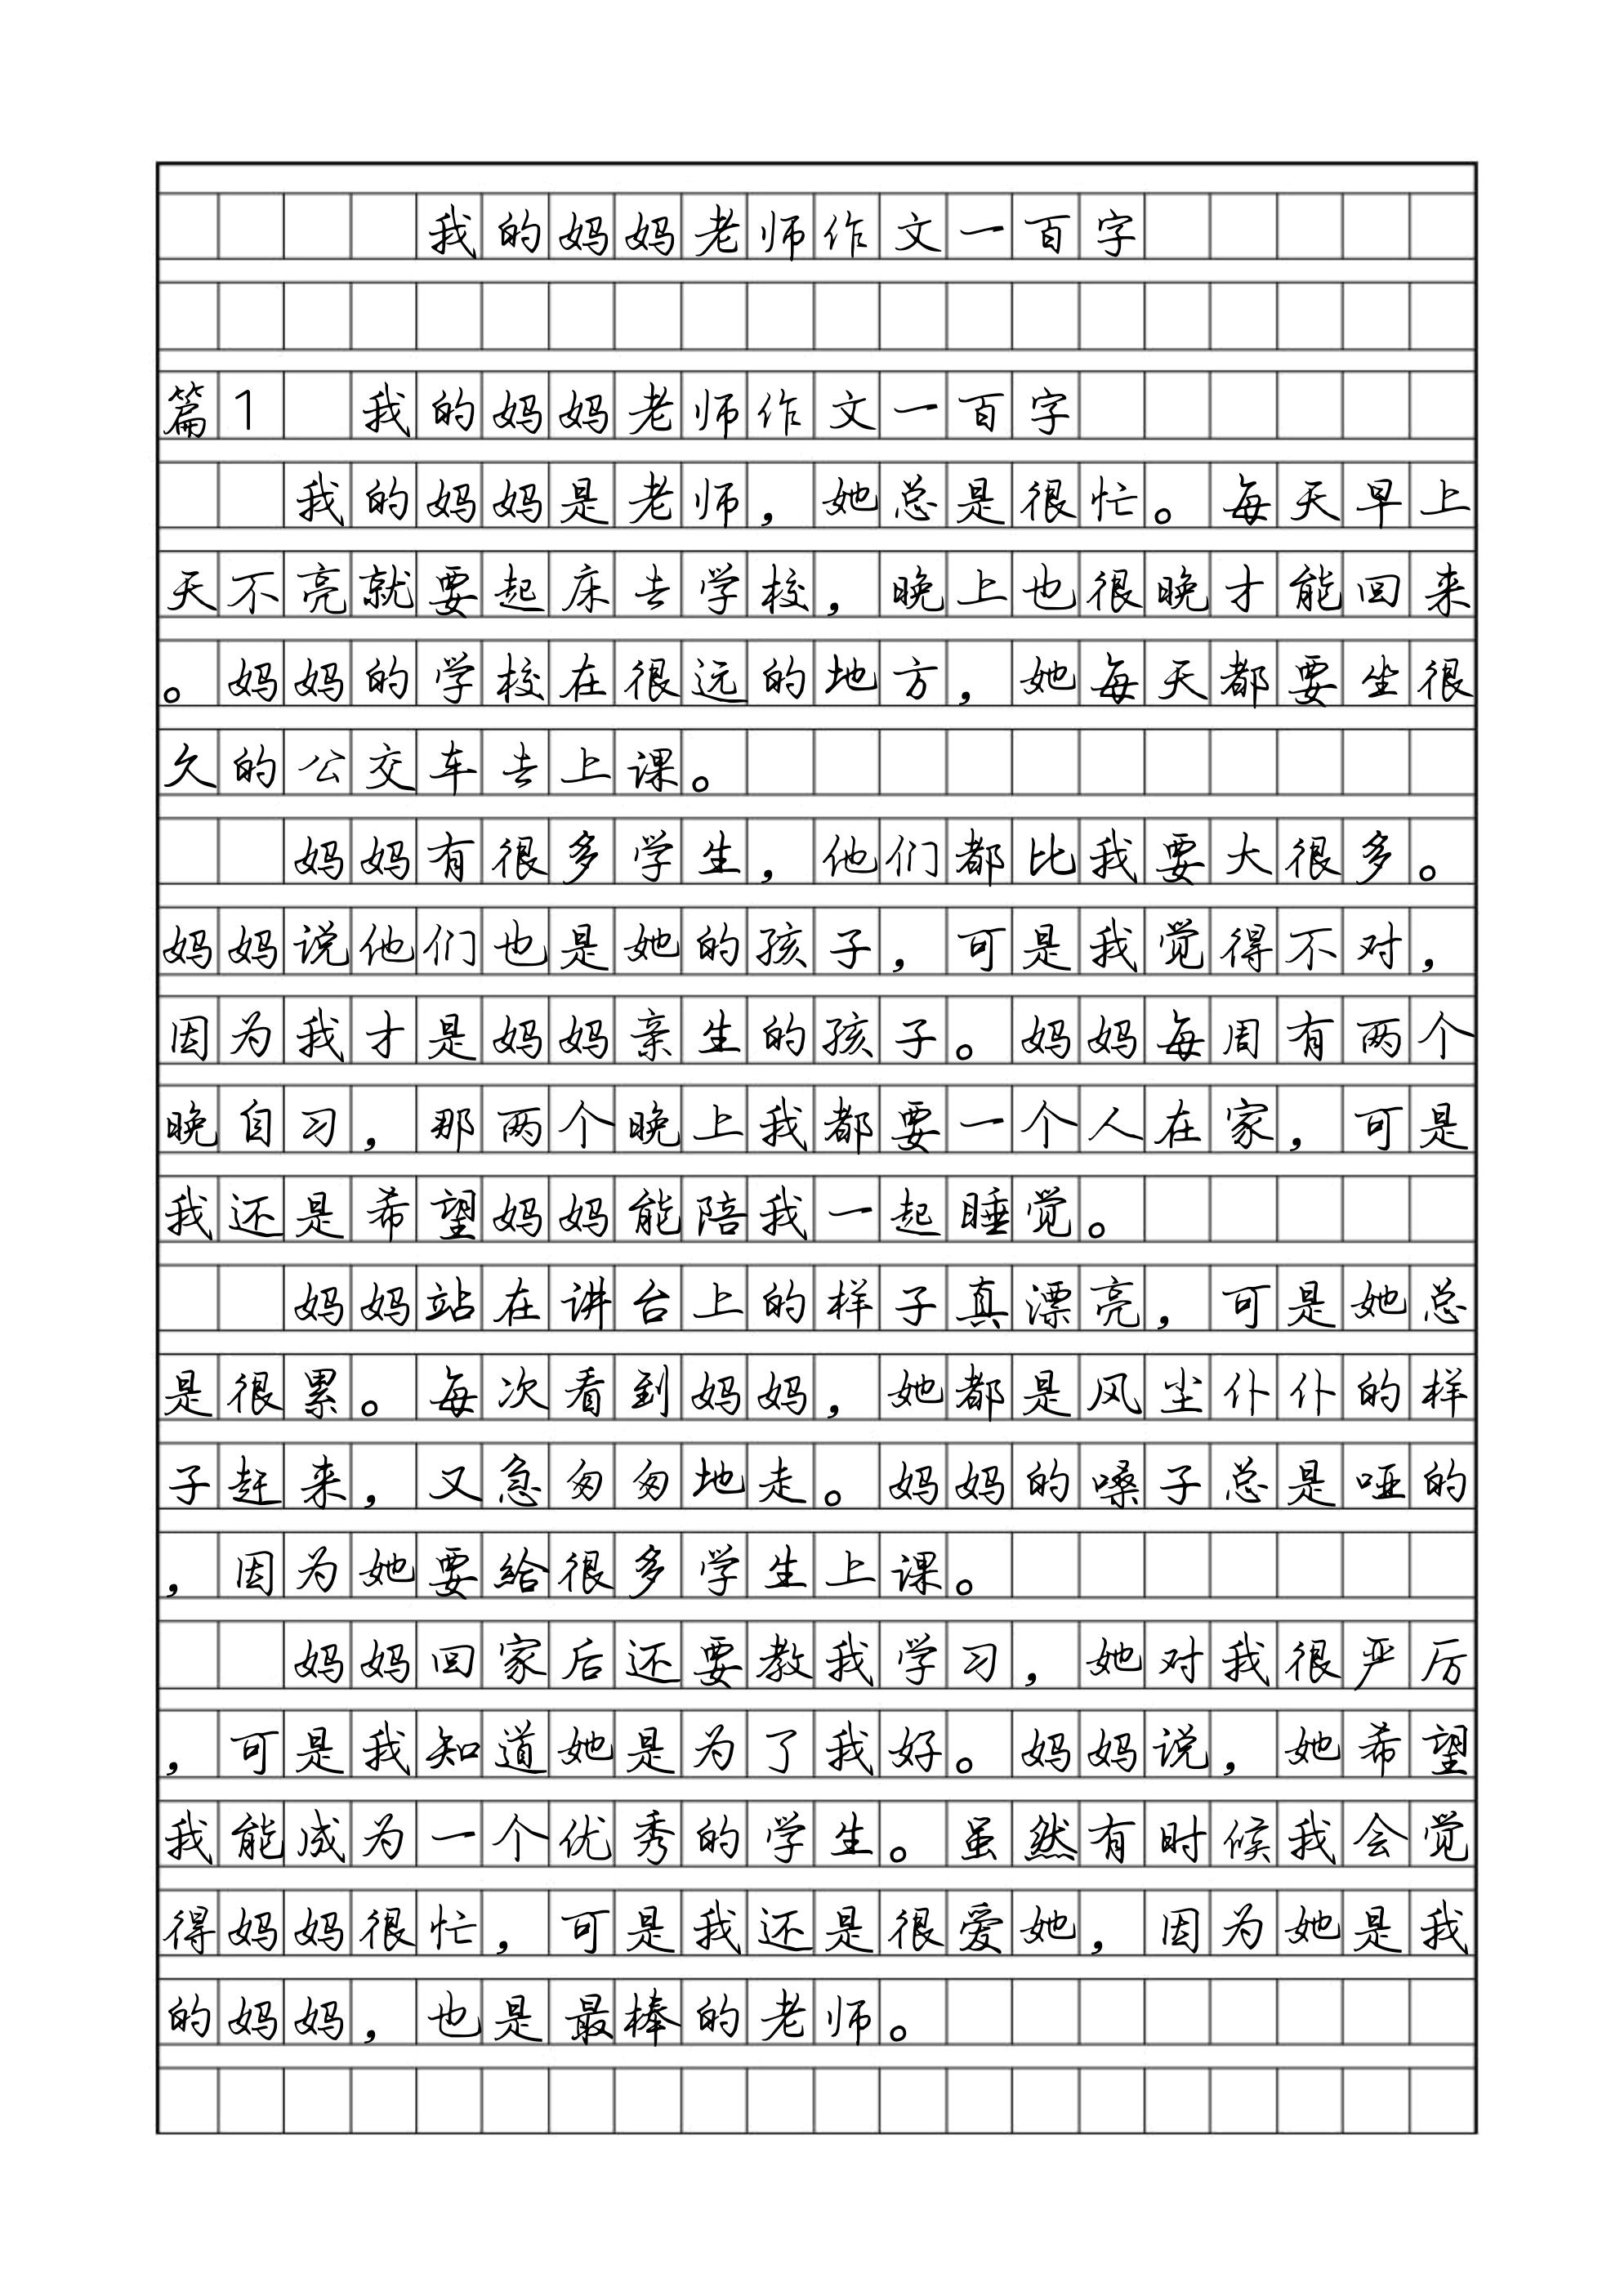 我的妈妈老师作文一百字
篇1 我的妈妈老师作文一百字
我的妈妈是老师，她总是很忙。每天早上
天不亮就要起床去学校，晚上也很晚才能回来
。妈妈的学校在很远的地方，她每天都要坐很
久的公交车去上课。
妈妈有很多学生，他们都比我要大很多。
妈妈说他们也是她的孩子，可是我觉得不对，
因为我才是妈妈亲生的孩子。妈妈每周有两个
晚自习，那两个晚上我都要一个人在家，可是
我还是希望妈妈能陪我一起睡觉。
妈妈站在讲台上的样子真漂亮，可是她总
是很累。每次看到妈妈，她都是风尘仆仆的样
子赶来，又急匆匆地走。妈妈的嗓子总是哑的
，因为她要给很多学生上课。
妈妈回家后还要教我学习，她对我很严厉
，可是我知道她是为了我好。妈妈说，她希望
我能成为一个优秀的学生。虽然有时候我会觉
得妈妈很忙，可是我还是很爱她，因为她是我
的妈妈，也是最棒的老师。